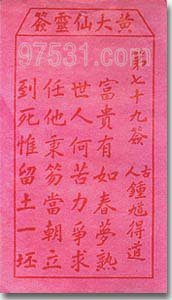 黃大仙靈簽
97531.com
第七十九簽
古人 鍾馗得道
富貴有如春夢熟
世人何苦力爭求
任他秉笏當朝立
到死惟留土一坯